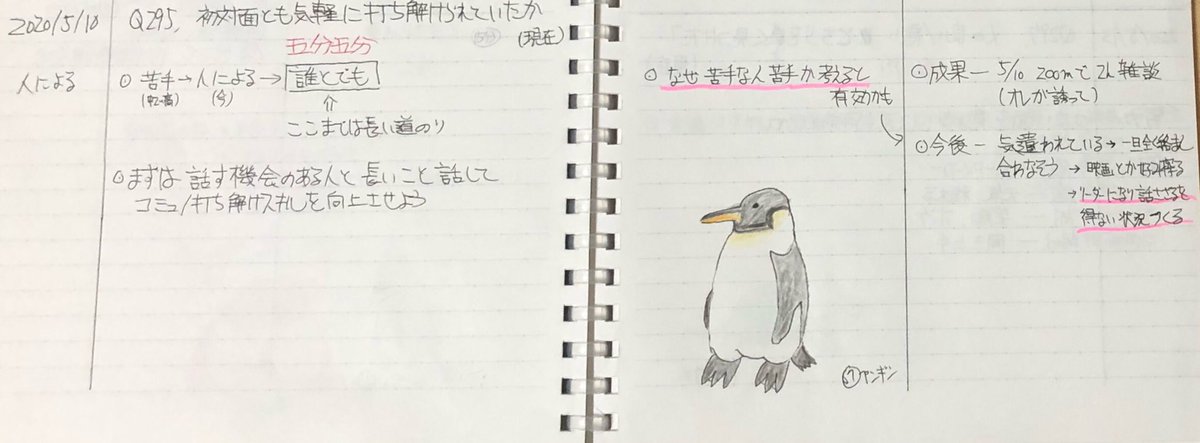 2020/5/10
Q295, 初対面とも気軽に打ち解けられていたか
(現在)
五分五分
人による
○ 苦手→人による→誰とでも
(今)
⇧
ここまでは長い道のり
○まずは 話す機会のある人と 長いこと 話して
コミュ/打ち解けスキルを向上させよう
○ なぜ苦手な人苦手か考えると
有効かも
○成果ー 5/10 zoomで2h雑談
(オレが誘って)
○今後ー 気遣われている→一旦
合わなそう →映画とか
→リーダーになり話さざるを
得ない状況つくる